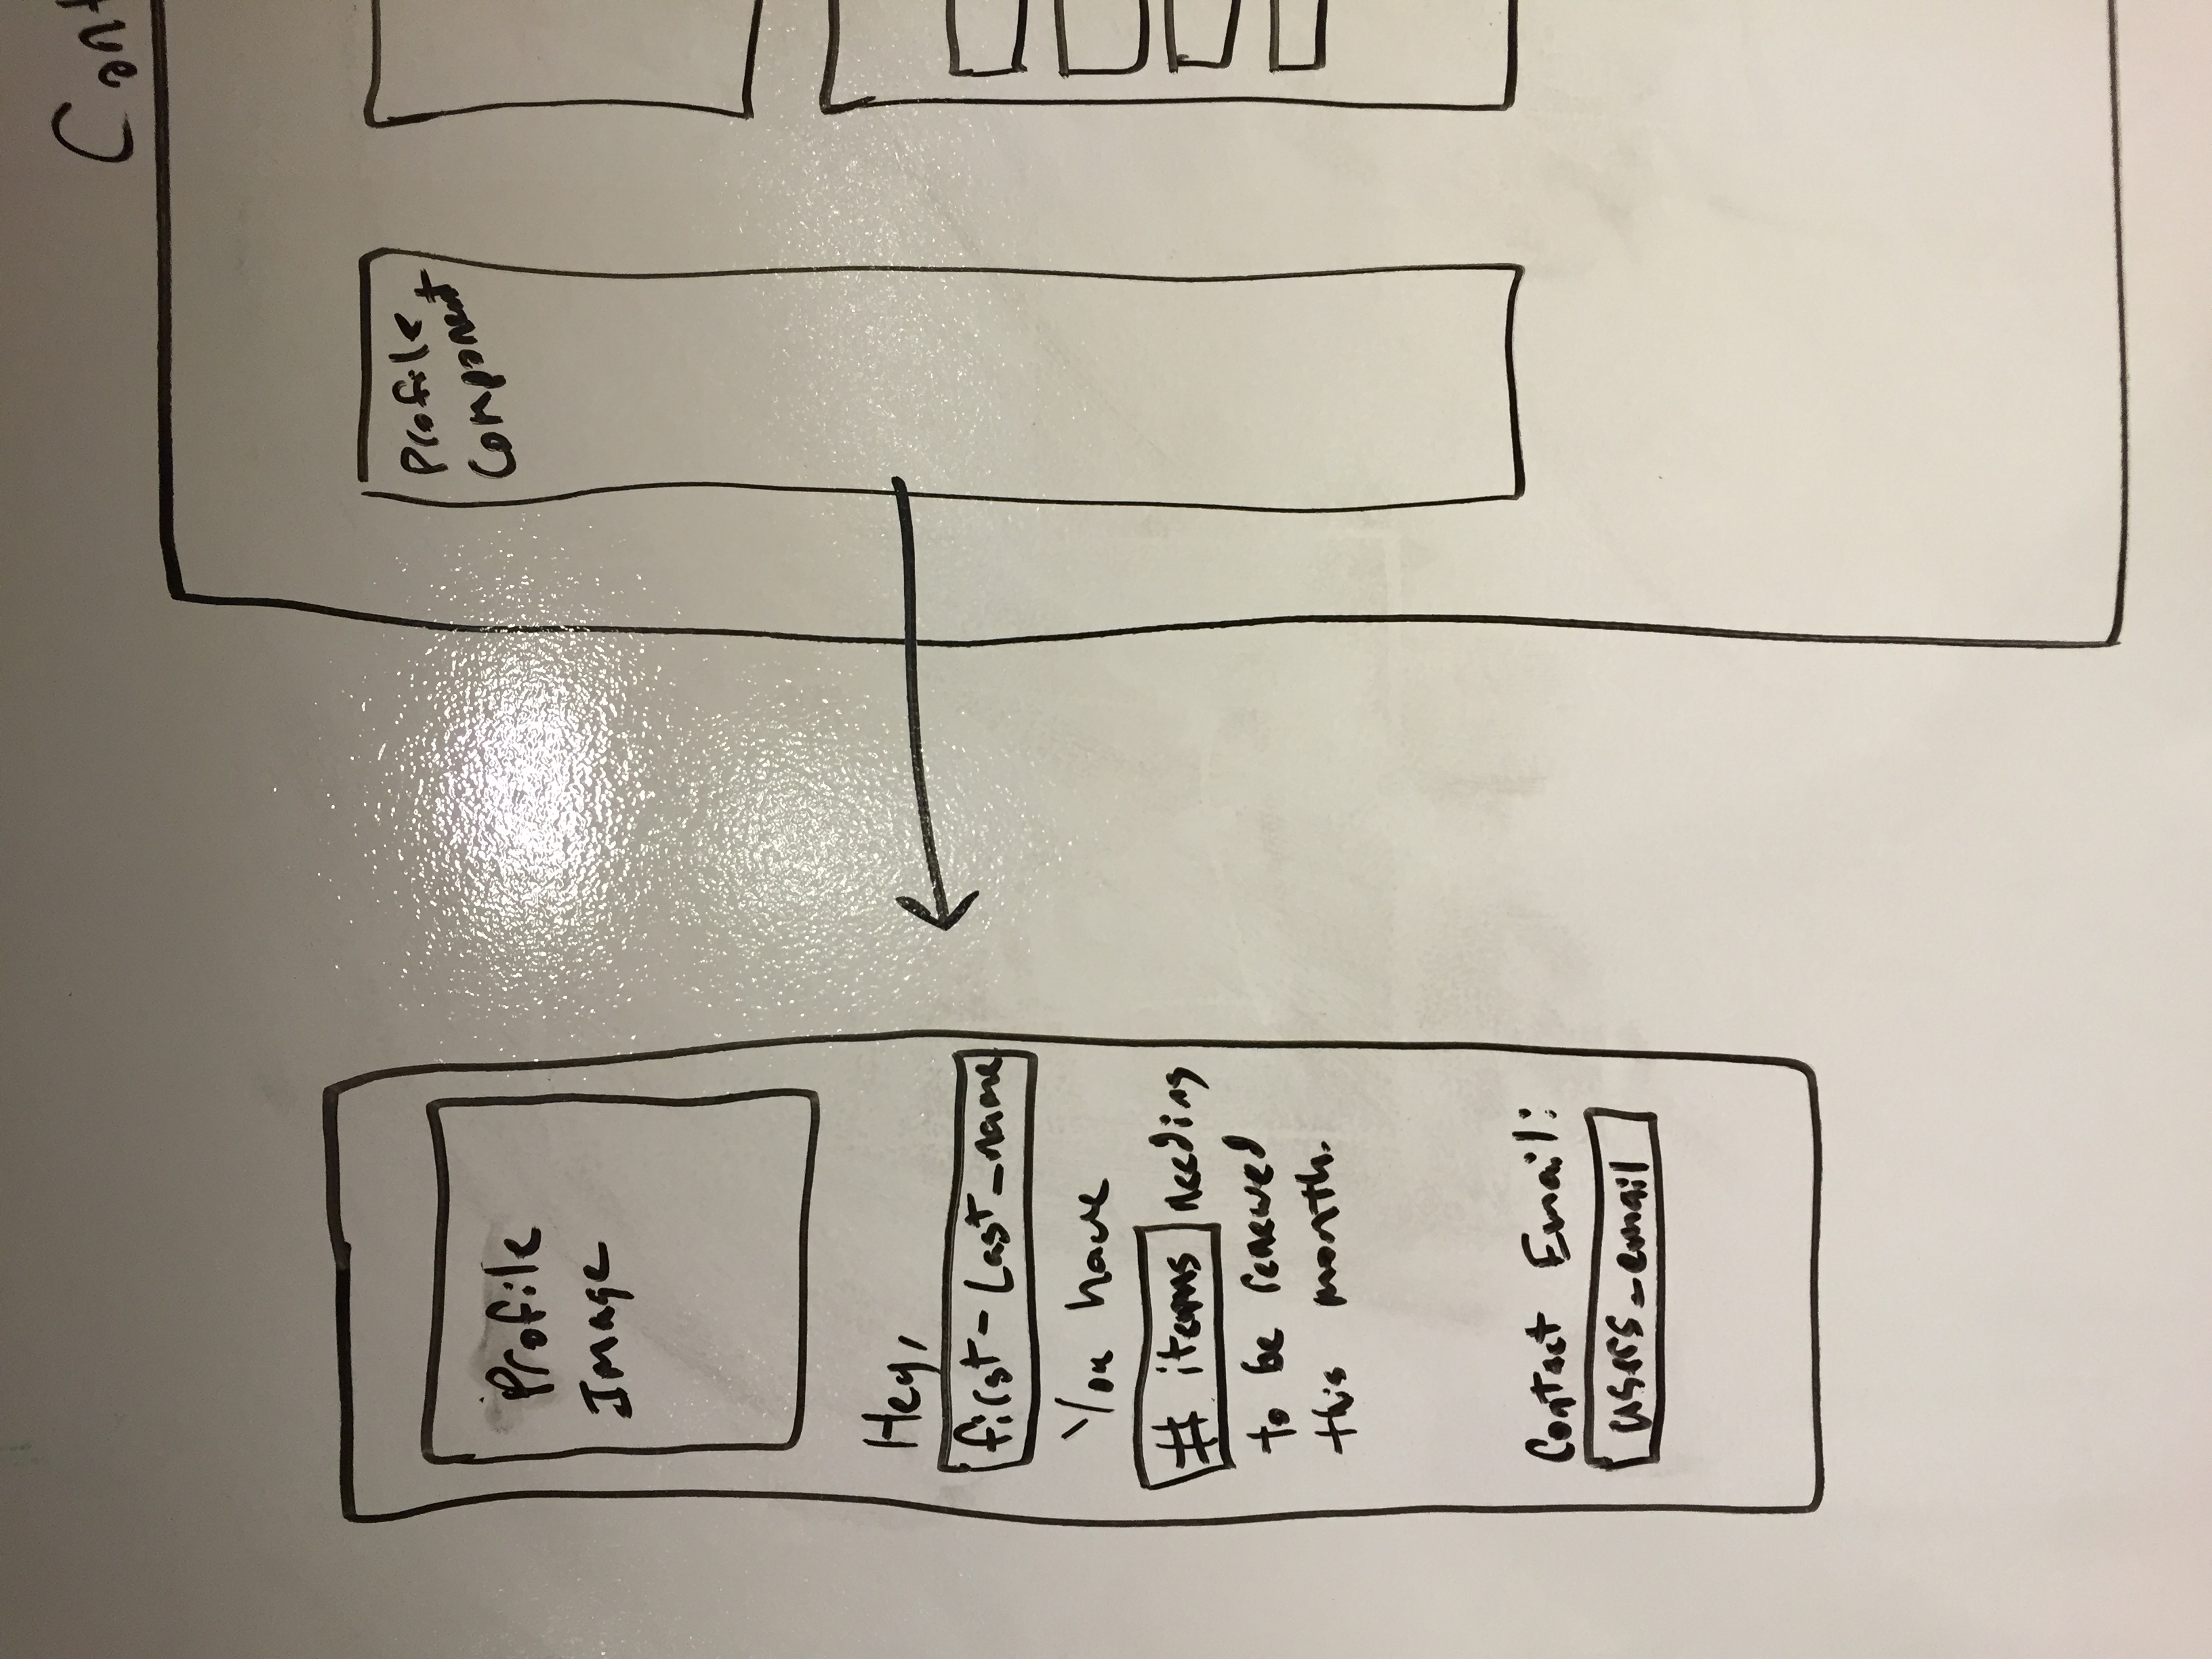 Profile
Image
Hey,
first-Last_name
You have
# items needing
to be renewed
this month.
Contact Email:
users_email
Profile
Component